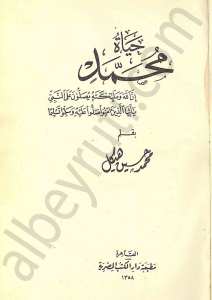 حياة
محمد
إن الله وملائكته يصلون على النبي
يا أيها الذين آمنوا صلوا عليه وسلموا تسليما
بقلم
محمد حسين هيكل
القاهرة
مطبعة دار الكتب المصرية
١٣٥٨
albeyrut.com